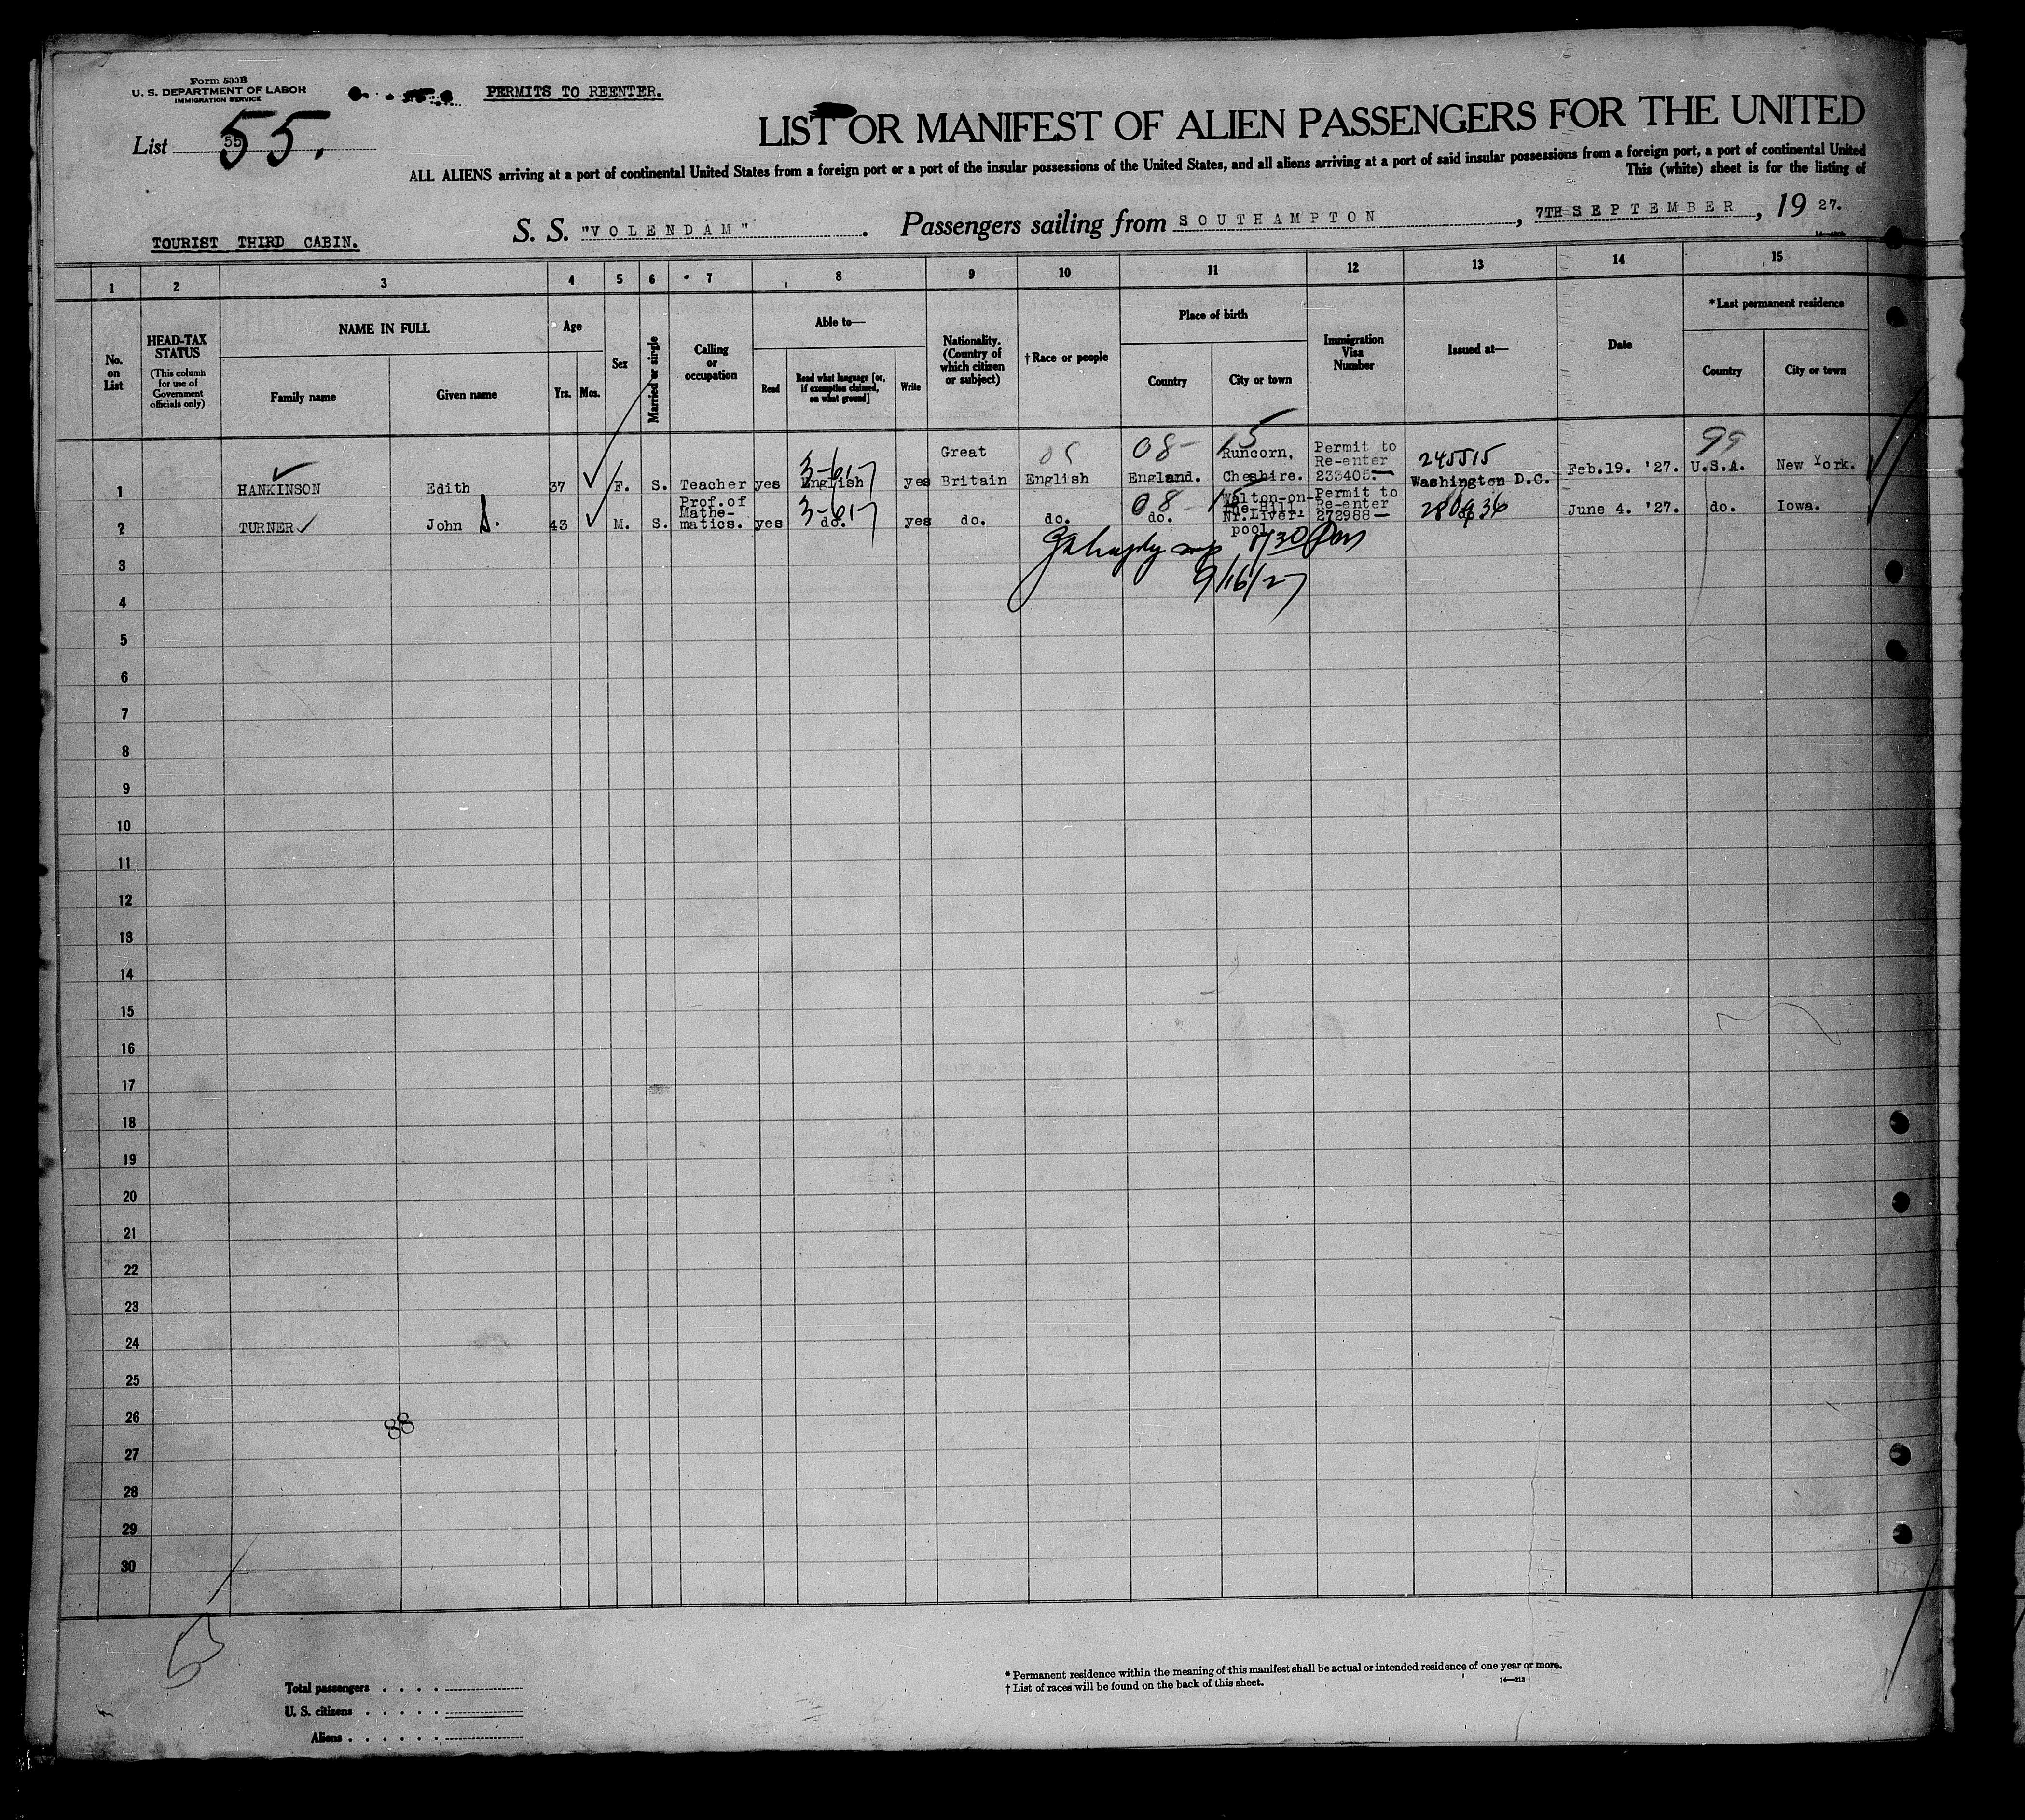 Form 500B
U. S. DEPARTMENT OF LABOR
IMMIGRATION SERVICE
PERMITS TO REENTER.
List 55 55.
LIST OR MANIFEST OF ALIEN PASSENGERS FOR THE UNITED
ALL ALIENS arriving at a port of continental United States from a foreign port or a port of the insular possessions of the United States, and all aliens arriving at a port of said insular possessions from a foreign port, a port of continental United
This (white) sheet is for the listing of
TOURIST THIRD CABIN.
S. S. "VOLENDAM". Passengers sailing from SOUTHAMPTON, 7TH SEPTEMBER, 19 27.
1 2 3 4 5 6 7 8 9 10 11 12 13 14 15
No. on List
HEAD-TAX STATUS (This column for use of Government officials only)
NAME IN FULL
Family name
Given name
Age
Yrs.
Mos.
Sex
Married or single
Calling or occupation
Able to—
Read
Read what language [or, if exemption claimed, on what ground]
Write
Nationality. (Country of which citizen or subject)
†Race or people
Place of birth
Country
City or town
Immigration Visa Number
Issued at—
Date
*Last permanent residence
Country
City or town
1 HANKINSON Edith 37 F. S. Teacher yes English 3-617 yes Great Britain English 05 England. 08- Runcorn, Cheshire. 15 Permit to Re-enter 233405.— 245515 Washington D.C. Feb.19. '27. 99 U.S.A. New York.
2 TURNER John S. 43 M. S. Prof.of Mathe-matics. yes do. 3-617 yes do. do. do. 08- Walton-on-the-Hill, Nr.Liver-pool 15 Permit to Re-enter 272988— do. June 4. '27. do. Iowa.
9/16/27
3
4
5
6
7
8
9
10
11
12
13
14
15
16
17
18
19
20
21
22
23
24
25
26
88
27
28
29
30
Total passengers
U. S. citizens
Aliens
* Permanent residence within the meaning of this manifest shall be actual or intended residence of one year or more.
† List of races will be found on the back of this sheet.
14—213